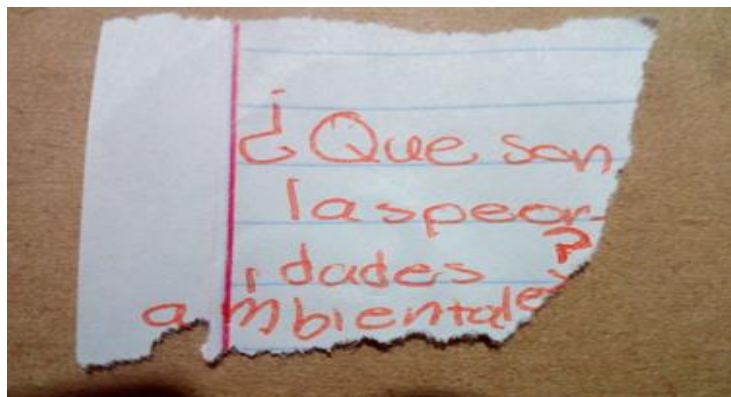 ¿Que son
laspeor-
idades
ambientales?